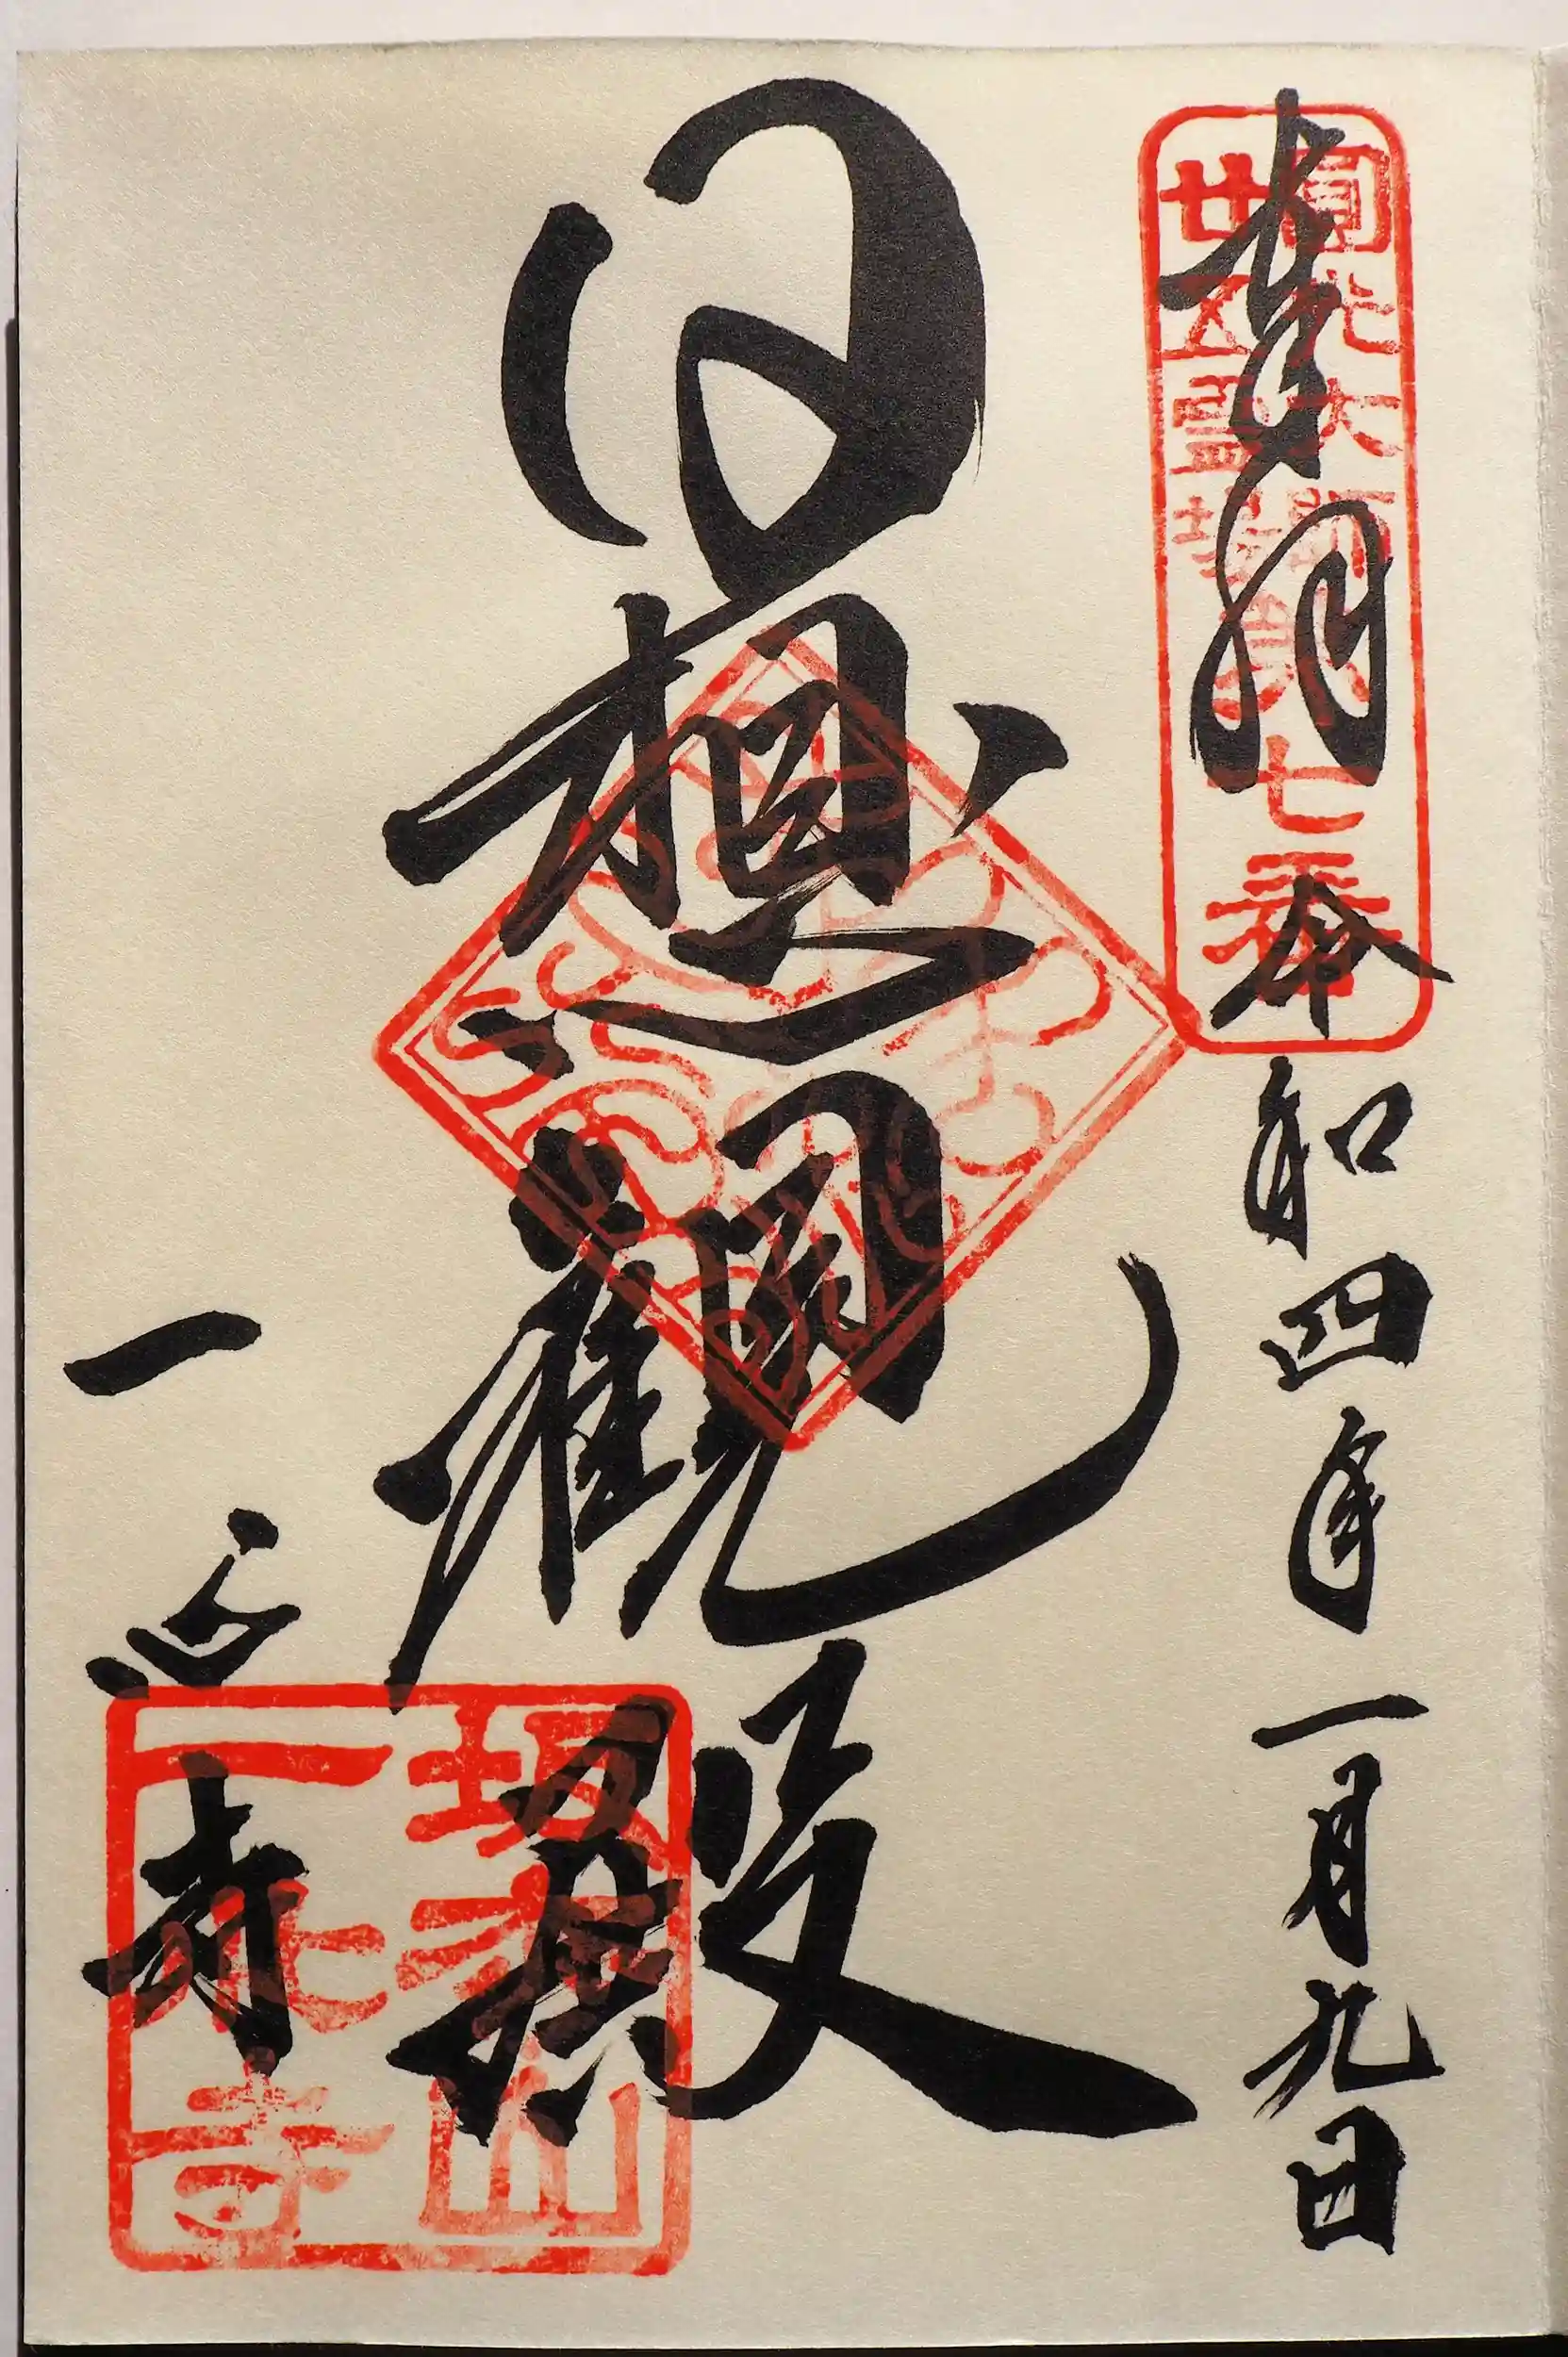 奉拝 令和四年一月九日
圓光大師
廿五霊場第七番
日想観殿
一心寺
坂松山
一心寺